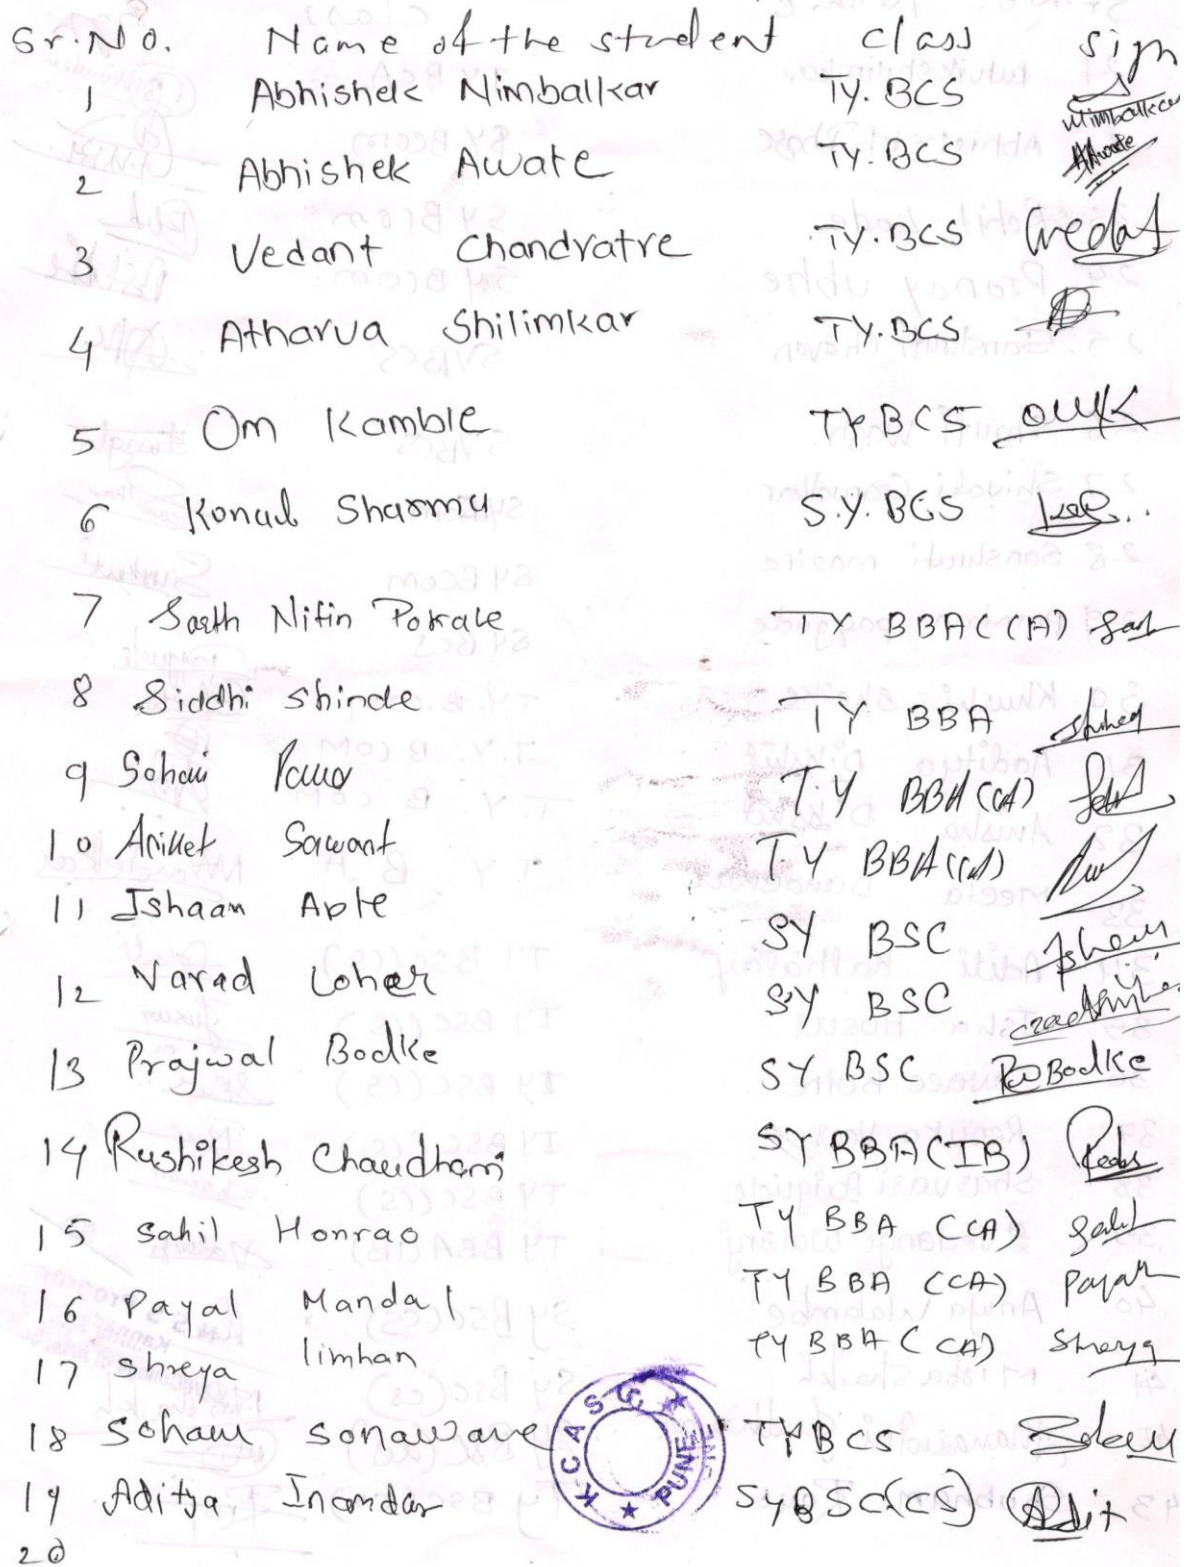 Sr.No. Name of the student class sign
1 Abhishek Nimbalkar TY.BCS Nimbalkar
2 Abhishek Awate TY.BCS AAwate
3 Vedant Chandratre TY.BCS
4 Atharva Shilimkar TY.BCS
5 Om Kamble TYBCS
6 Konal Sharma S.Y.BCS
7 Sarth Nitin Pokale TY BBA(CA)
8 Siddhi shinde TY BBA
9 Soham Pawar T.Y BBA(CA)
10 Aniket Sawant T.Y BBA(CA)
11 Ishaan Apte SY BSC
12 Varad Loher SY BSC
13 Prajwal Bodke SY BSC Bodke
14 Rushikesh Chaudhari SY BBA(IB)
15 Sahil Honrao TY BBA (CA)
16 Payal Mandal TY BBA (CA) Payal
17 Shreya limhan TY BBA (CA) Shreya
18 Soham sonawane TYBCS
19 Aditya Inamdar SYBSC(CS) Adit
20
KCASC ★ PUNE ★